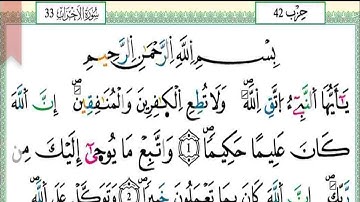 حِزْب 42
سُورَةُ الأَحْزَابِ 33
بِسْمِ اللَّهِ الرَّحْمَٰنِ الرَّحِيمِ
يَٰٓأَيُّهَا اَلنَّبِيٓءُ اتَّقِ اِللَّهَ وَلَا تُطِعِ اِلْكَٰفِرِينَ وَالْمُنَٰفِقِينَۖ إِنَّ اَللَّهَ
كَانَ عَلِيمًا حَكِيمًاۖ 1 وَاتَّبِعْ مَا يُوحَىٰٓ إِلَيْكَ مِن
رَّبِّكَۖ إِنَّ اَللَّهَ كَانَ بِمَا تَعْمَلُونَ خَبِيرًاۖ 2 وَتَوَكَّلْ عَلَى اَللَّهِۖ